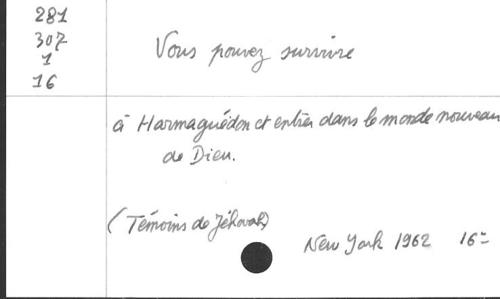 281
307
1
16
Vous pouvez survivre
à Harmaguédon et entrer dans le monde nouveau
de Dieu.
(Témoins de Jéhovah)
New York 1962 16°